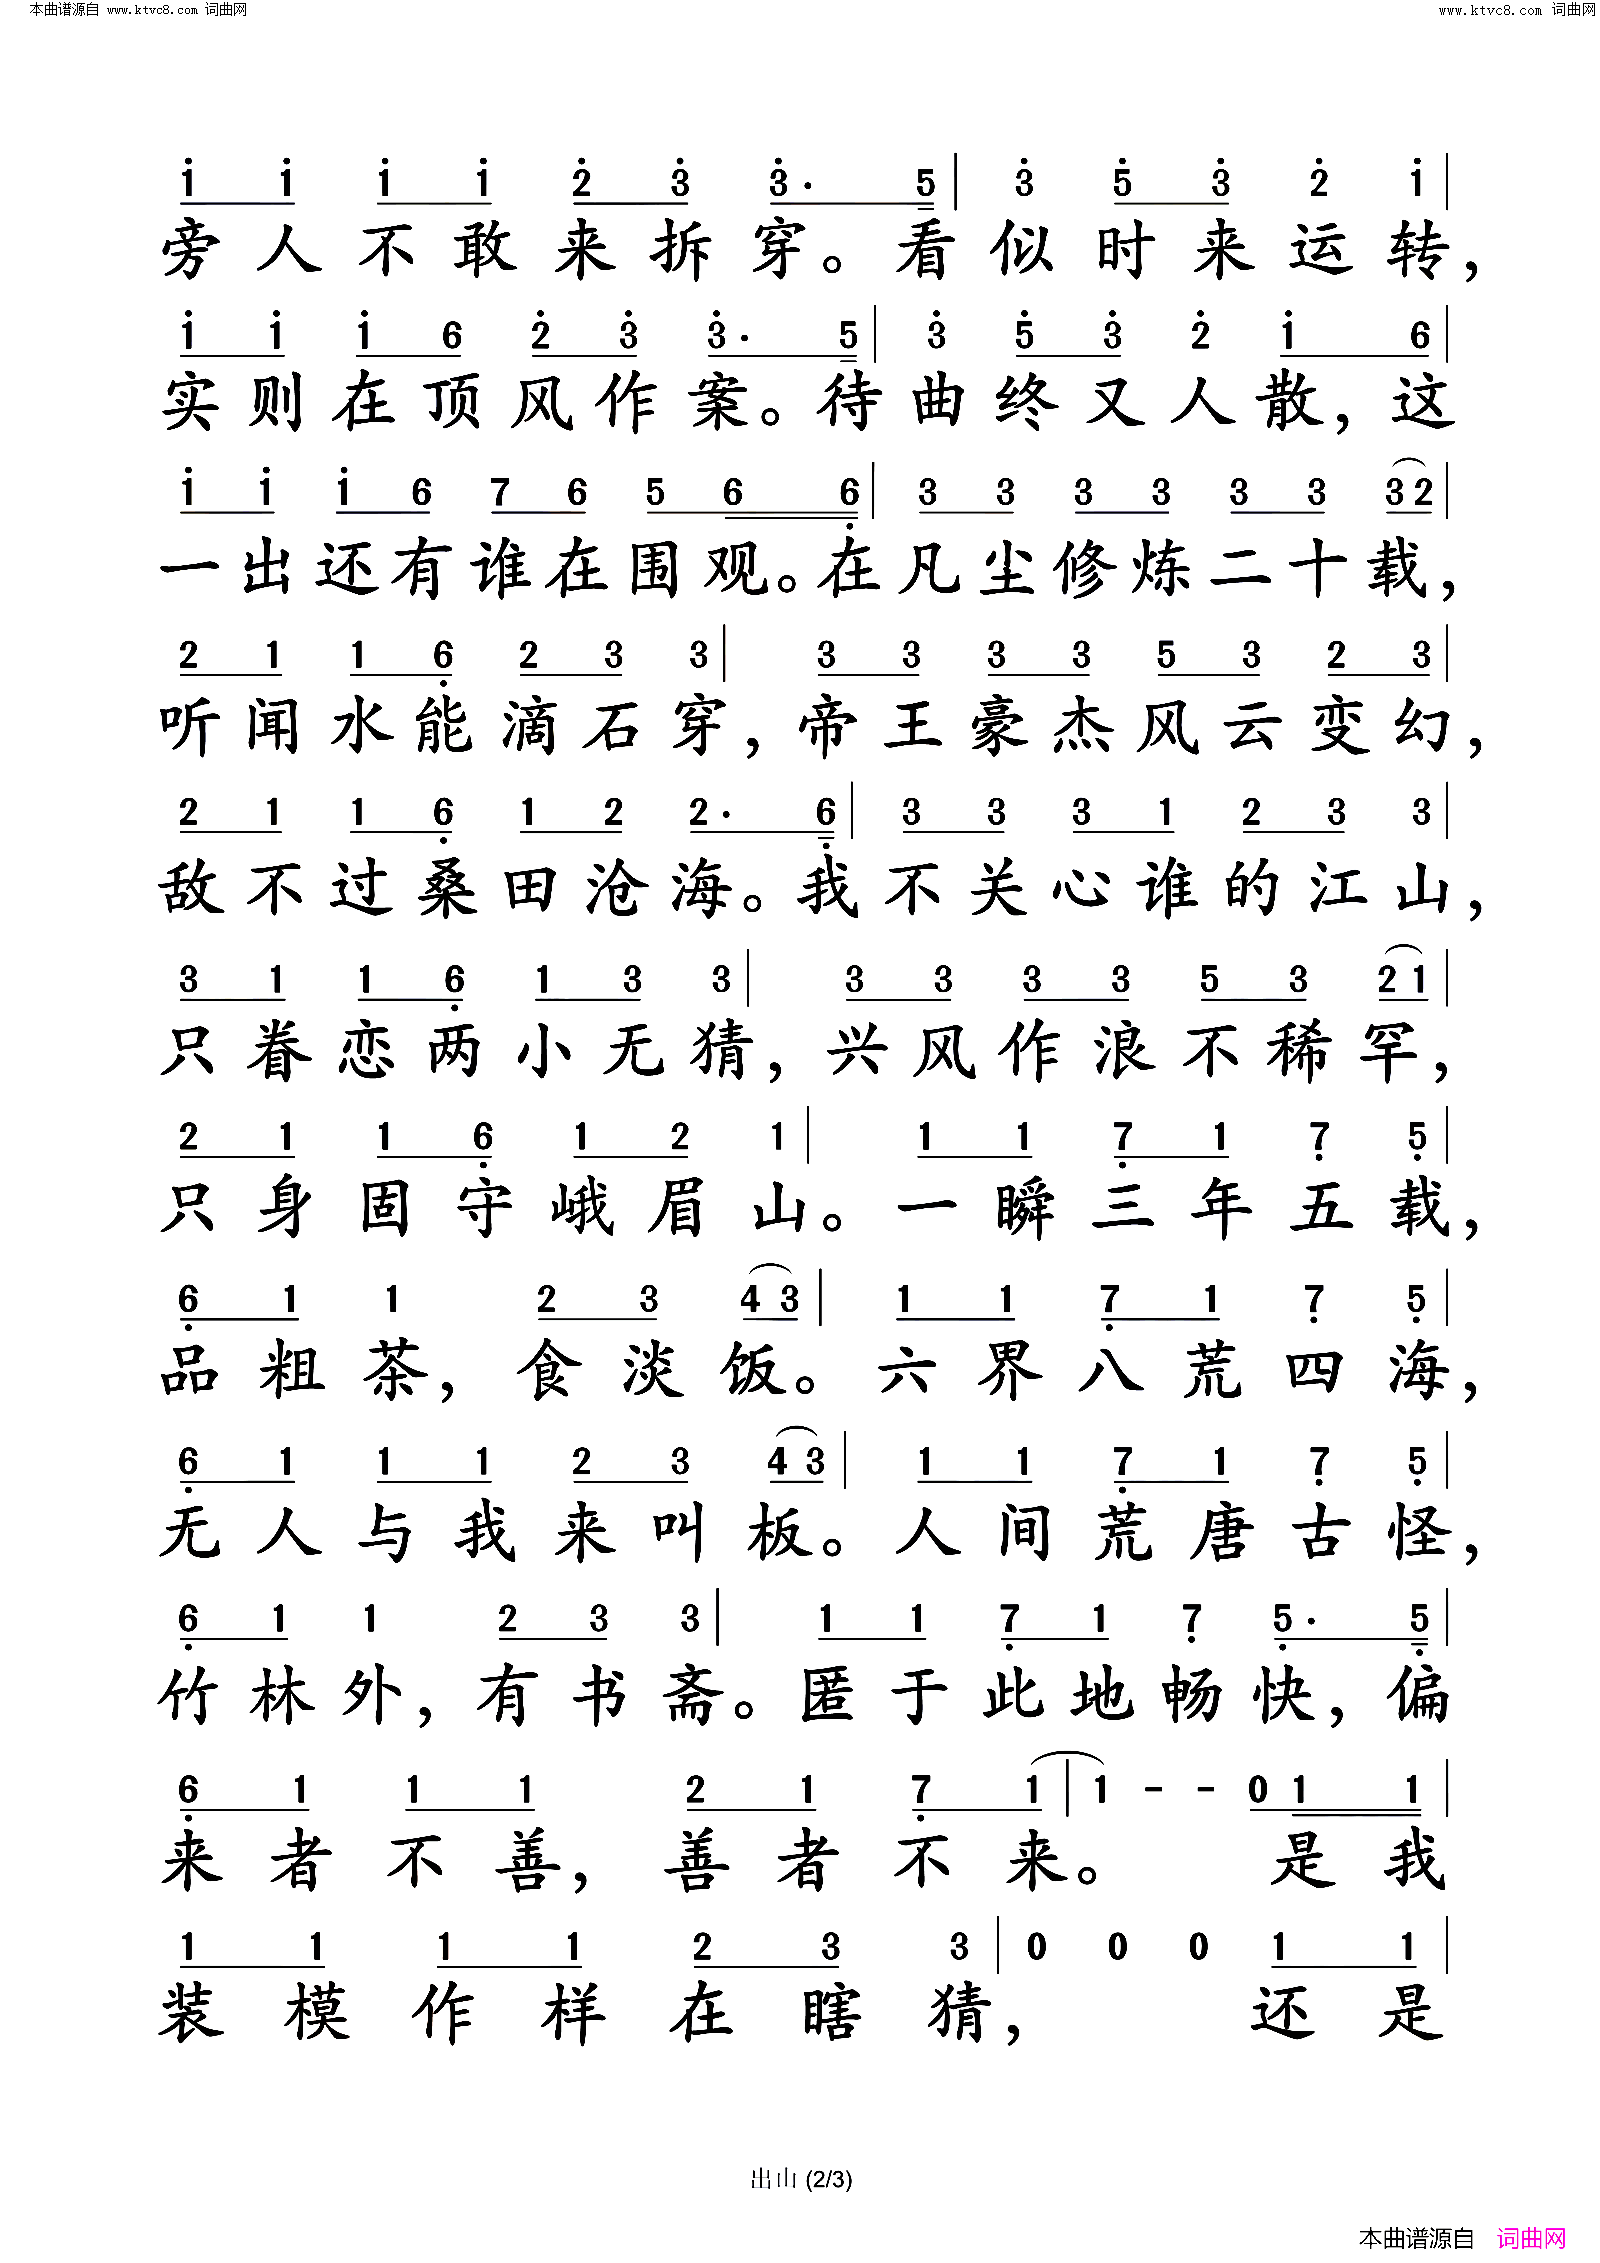 本曲谱源自 www.ktvc8.com 词曲网 www.ktvc8.com 词曲网
i i i i 2̇ 3̇ 3̇· 5 | 3̇ 5̇ 3̇ 2̇ i |
旁人不敢来拆穿。看似时来运转，
i i i 6 2̇ 3̇ 3̇· 5 | 3̇ 5̇ 3̇ 2̇ i 6 |
实则在顶风作案。待曲终又人散，这
i i i 6 7 6 5 6 6̣ | 3 3 3 3 3 3 3 2 |
一出还有谁在围观。在凡尘修炼二十载，
2 1 1 6̣ 2 3 3 | 3 3 3 3 5 3 2 3 |
听闻水能滴石穿，帝王豪杰风云变幻，
2 1 1 6̣ 1 2 2· 6̣ | 3 3 3 1 2 3 3 |
敌不过桑田沧海。我不关心谁的江山，
3 1 1 6̣ 1 3 3 | 3 3 3 3 5 3 2 1 |
只眷恋两小无猜，兴风作浪不稀罕，
2 1 1 6̣ 1 2 1 | 1 1 7̣ 1 7̣ 5̣ |
只身固守峨眉山。一瞬三年五载，
6̣ 1 1 2 3 4 3 | 1 1 7̣ 1 7̣ 5̣ |
品粗茶，食淡饭。六界八荒四海，
6̣ 1 1 1 2 3 4 3 | 1 1 7̣ 1 7̣ 5̣ |
无人与我来叫板。人间荒唐古怪，
6̣ 1 1 2 3 3 | 1 1 7̣ 1 7̣ 5̣· 5̣ |
竹林外，有书斋。匿于此地畅快，偏
6̣ 1 1 1 2 1 7̣ 1 | 1 - - 0 1 1 |
来者不善，善者不来。 是我
1 1 1 1 2 3 3 | 0 0 0 1 1 |
装模作样在瞎猜， 还是
出山 (2/3)
本曲谱源自 词曲网